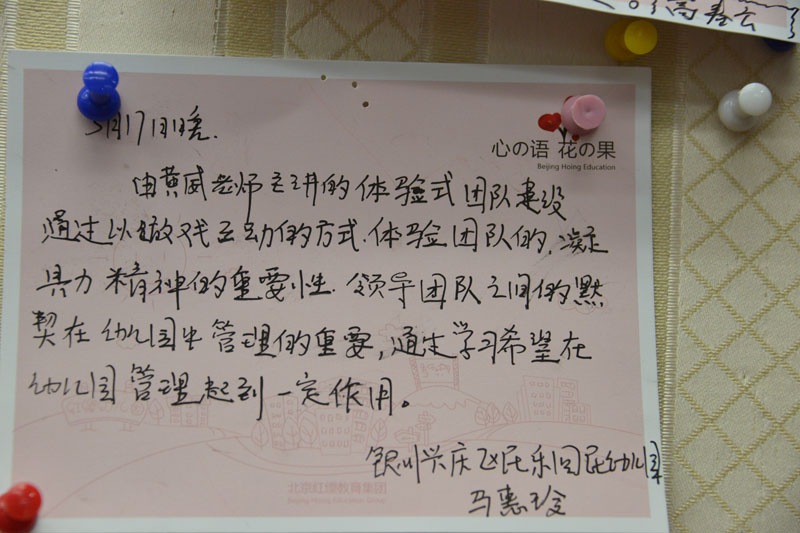 3月17日晚.
心の语 花の果
Beijing Hoing Education
由黄威老师主讲的体验式团队建设
通过以做戏互动的方式.体验团队的,凝
具力精神的重要性.领导团队之间的黙
契在幼儿园中管理的重要,通过学习希望在
幼儿园管理起到一定作用。
银川兴庆区民乐回民幼儿园
马惠玲
北京红缨教育集团
Beijing Hoing Education Group